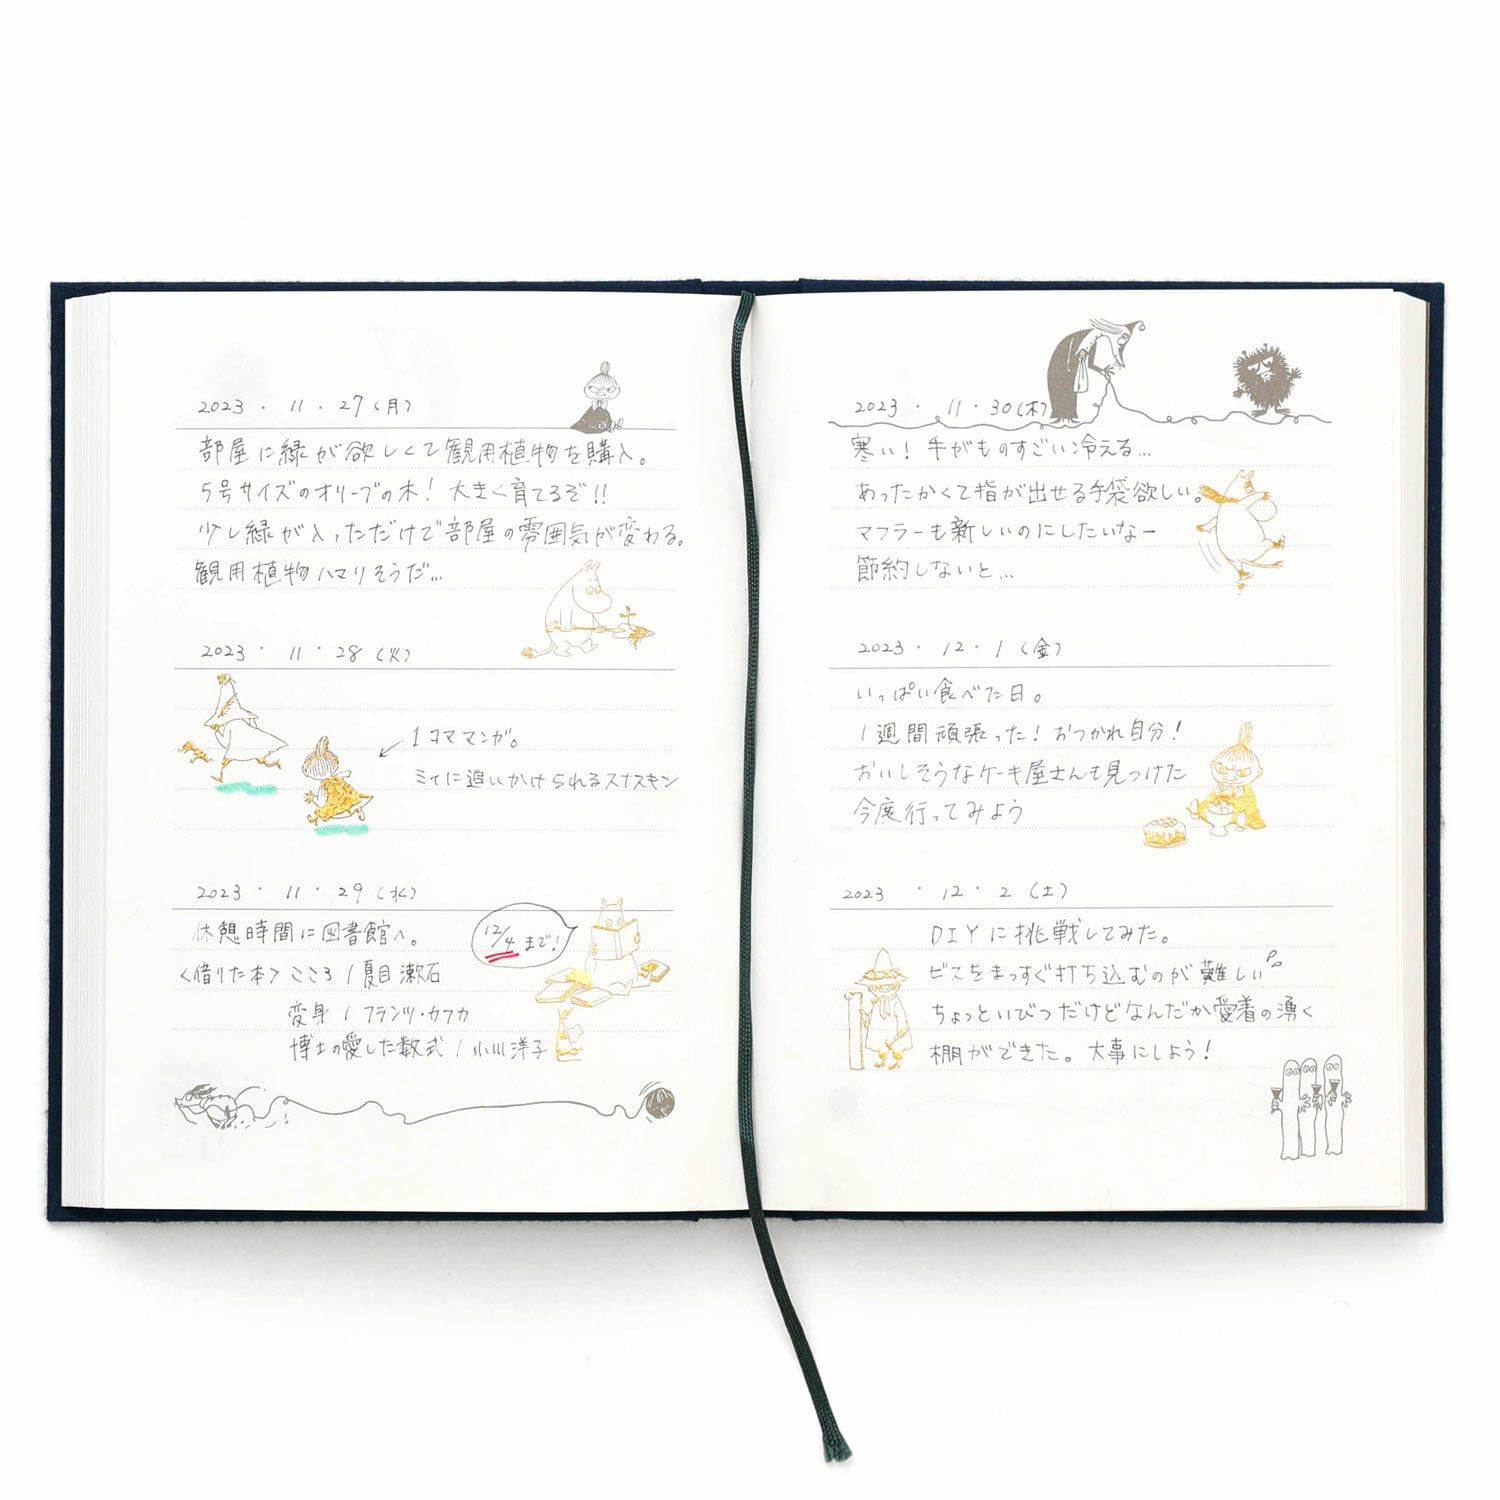 2023 ・ 11 ・ 27 (月)
部屋に緑が欲しくて観用植物を購入。
5号サイズのオリーブの木! 大きく育てるぞ!!
少し緑が入っただけで部屋の雰囲気が変わる。
観用植物ハマりそうだ…
2023 ・ 11 ・ 28 (火)
1コママンガ。
ミイに追いかけられるスナスキン
2023 ・ 11 ・ 29 (水)
休憩時間に図書館へ。
12/4まで!
<借りた本> こころ / 夏目漱石
変身 / フランツ・カフカ
博士の愛した数式 / 小川洋子
2023 ・ 11 ・ 30 (木)
寒い! 手がものすごい冷える…
あったかくて指が出せる手袋欲しい。
マフラーも新しいのにしたいなー
節約しないと…
2023 ・ 12 ・ 1 (金)
いっぱい食べた日。
1週間頑張った! おつかれ自分!
おいしそうなケーキ屋さんも見つけた
今度行ってみよう
2023 ・ 12 ・ 2 (土)
DIYに挑戦してみた。
ビスをまっすぐ打ち込むのが難しい
ちょっといびつだけどなんだか愛着の湧く
棚ができた。 大事にしよう!